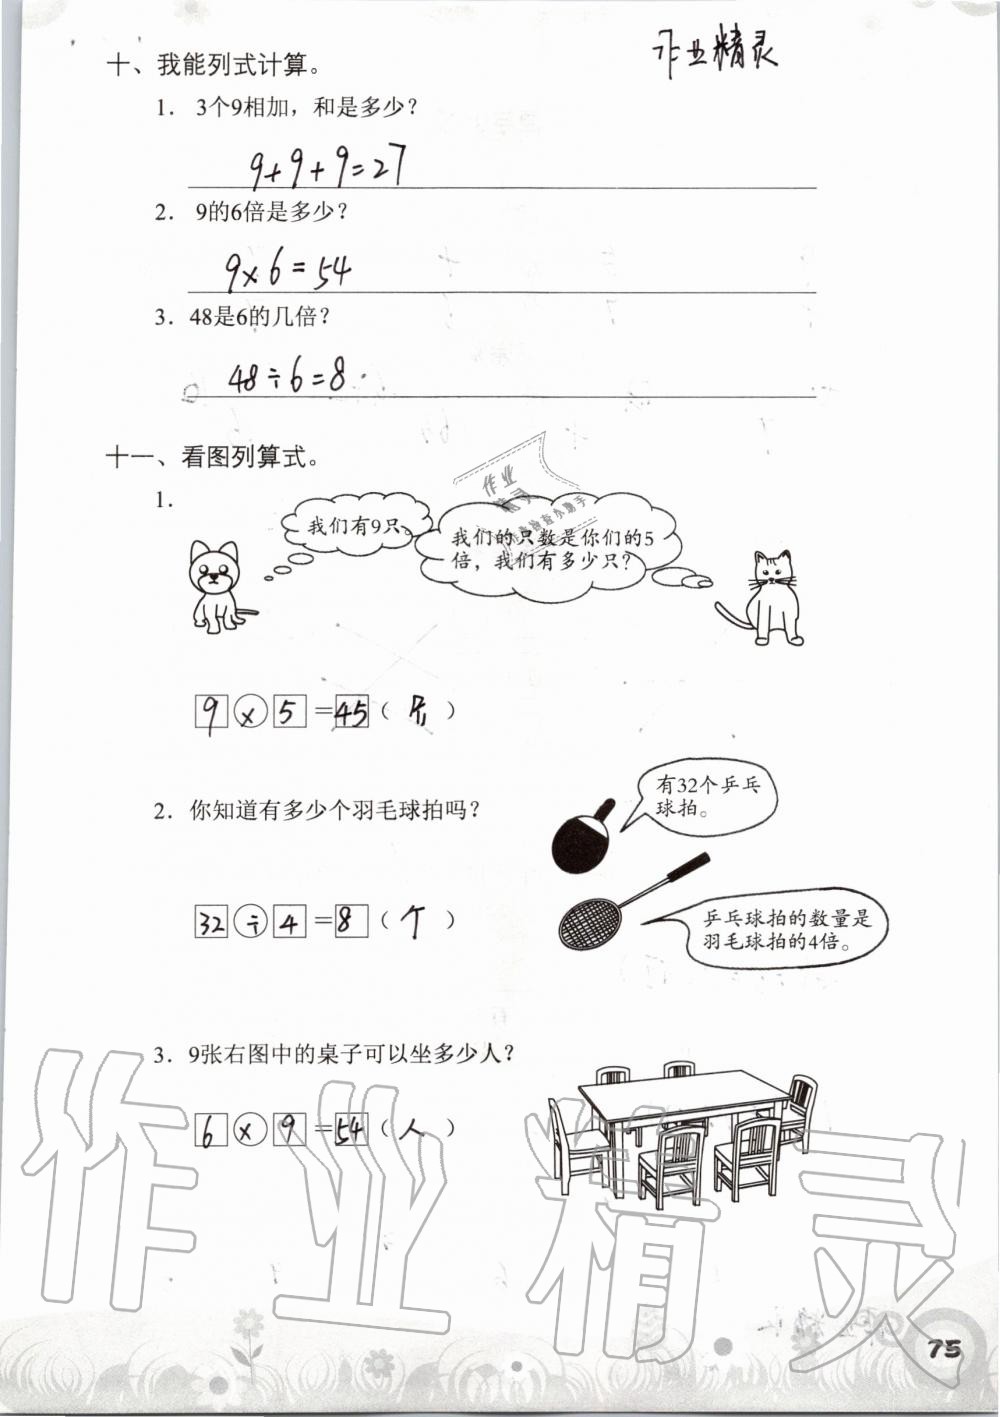 作业精灵
十、我能列式计算。
1. 3个9相加，和是多少？
9+9+9=27
2. 9的6倍是多少？
9×6=54
3. 48是6的几倍？
48÷6=8
十一、看图列算式。
1.
作业
精灵
我们有9只。
我们的只数是你们的5
倍，我们有多少只？
9×5=45（只）
有32个乒乓
球拍。
2. 你知道有多少个羽毛球拍吗？
32÷4=8（个）
乒乓球拍的数量是
羽毛球拍的4倍。
3. 9张右图中的桌子可以坐多少人？
6×9=54（人）
作业精灵
75